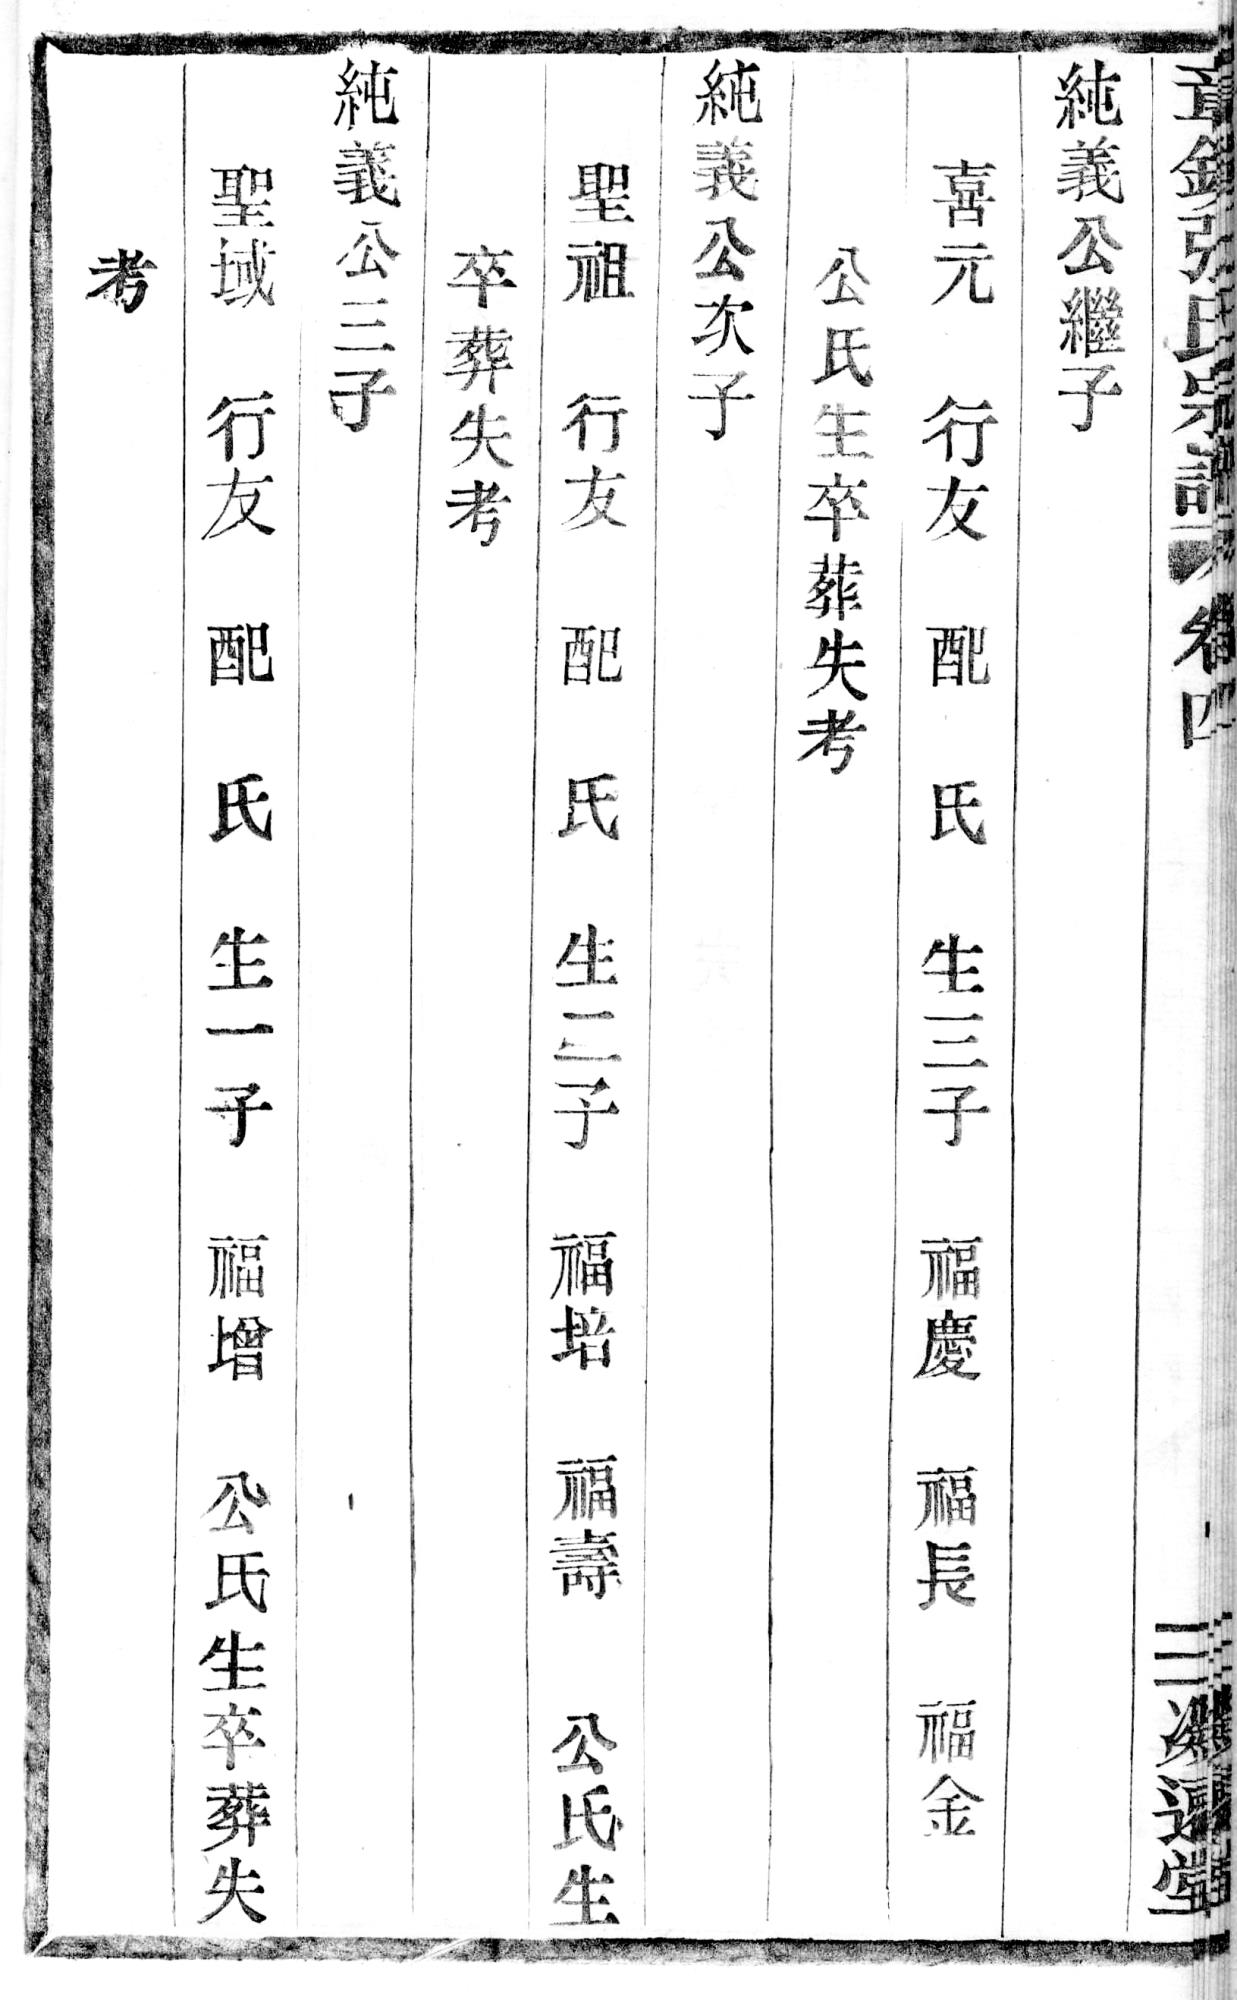 張氏宗譜 卷四
純義公繼子
喜元 行友 配 氏 生三子 福慶 福長 福金
公氏生卒葬失考
純義公次子
聖祖 行友 配 氏 生二子 福培 福壽 公氏生
卒葬失考
純義公三子
聖域 行友 配 氏 生一子 福增 公氏生卒葬失
考